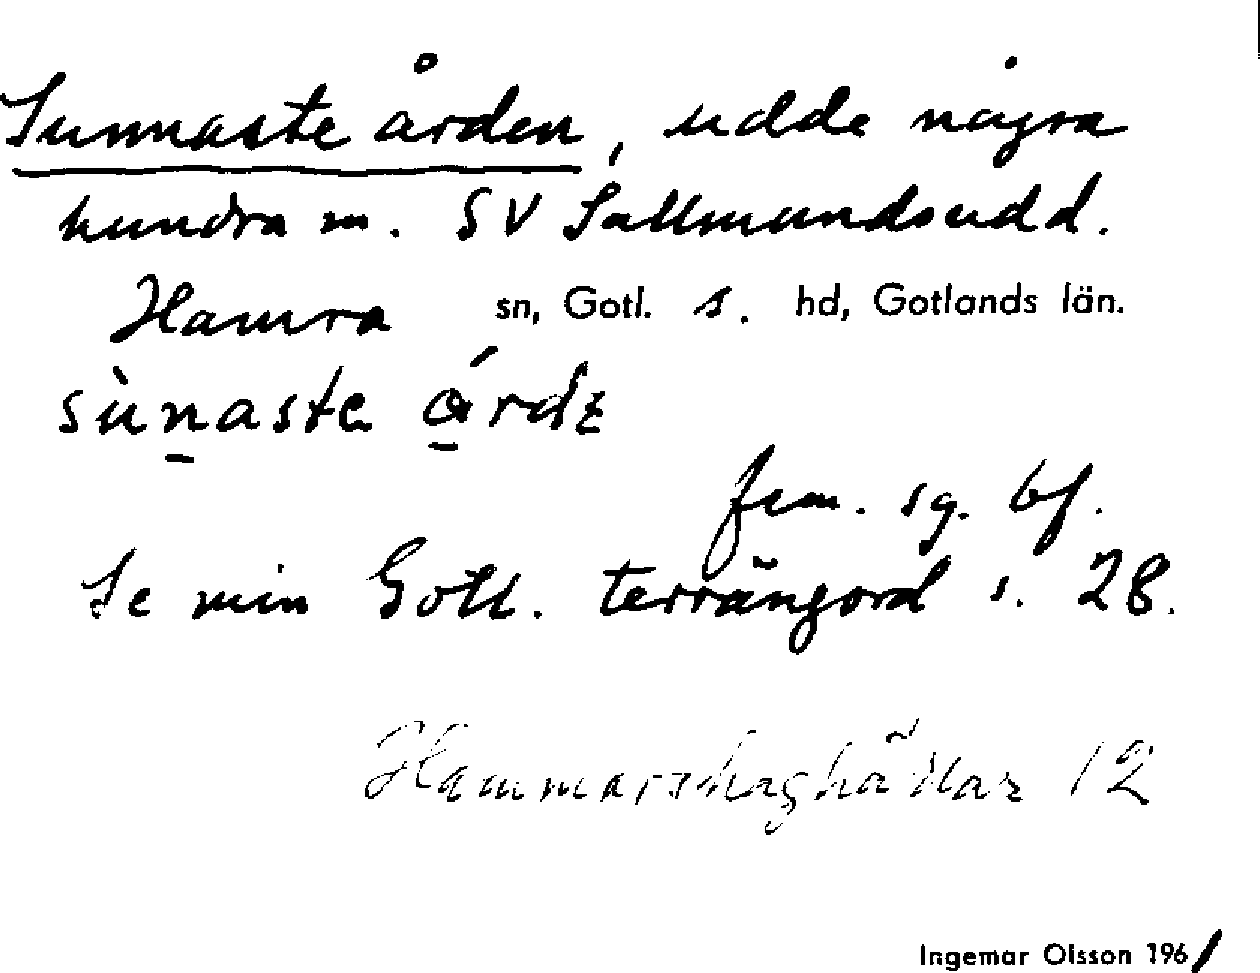 Sunnaste ården, udde några
hundra m. SV Sallmundsudd.
Hamra sn, Gotl. s. hd, Gotlands län.
sùnaste árdɛ
fem. sg. bf.
Se min Gotl. terrängord s. 28.
Hammarshaghällar 12
Ingemar Olsson 1961